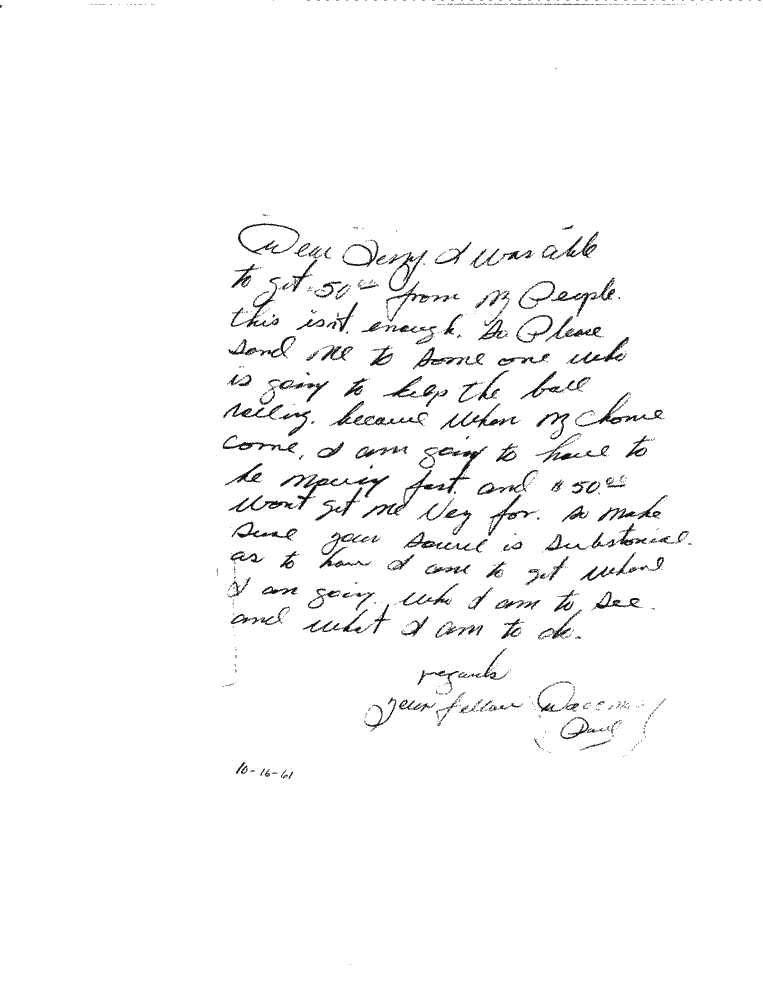 Dear Jerry. I was able
to get $50.00 from my People.
this isn't enough. So Please
send me to some one who
is going to keep the ball
rolling. because when my chance
come, I am going to have to
be moving fast. and $50.00
wont get me very far. so make
sure your source is substonical.
as to how I am to get where
I am going, who I am to see.
and what I am to do.
regards
your fellow
(Paul)
10-16-61